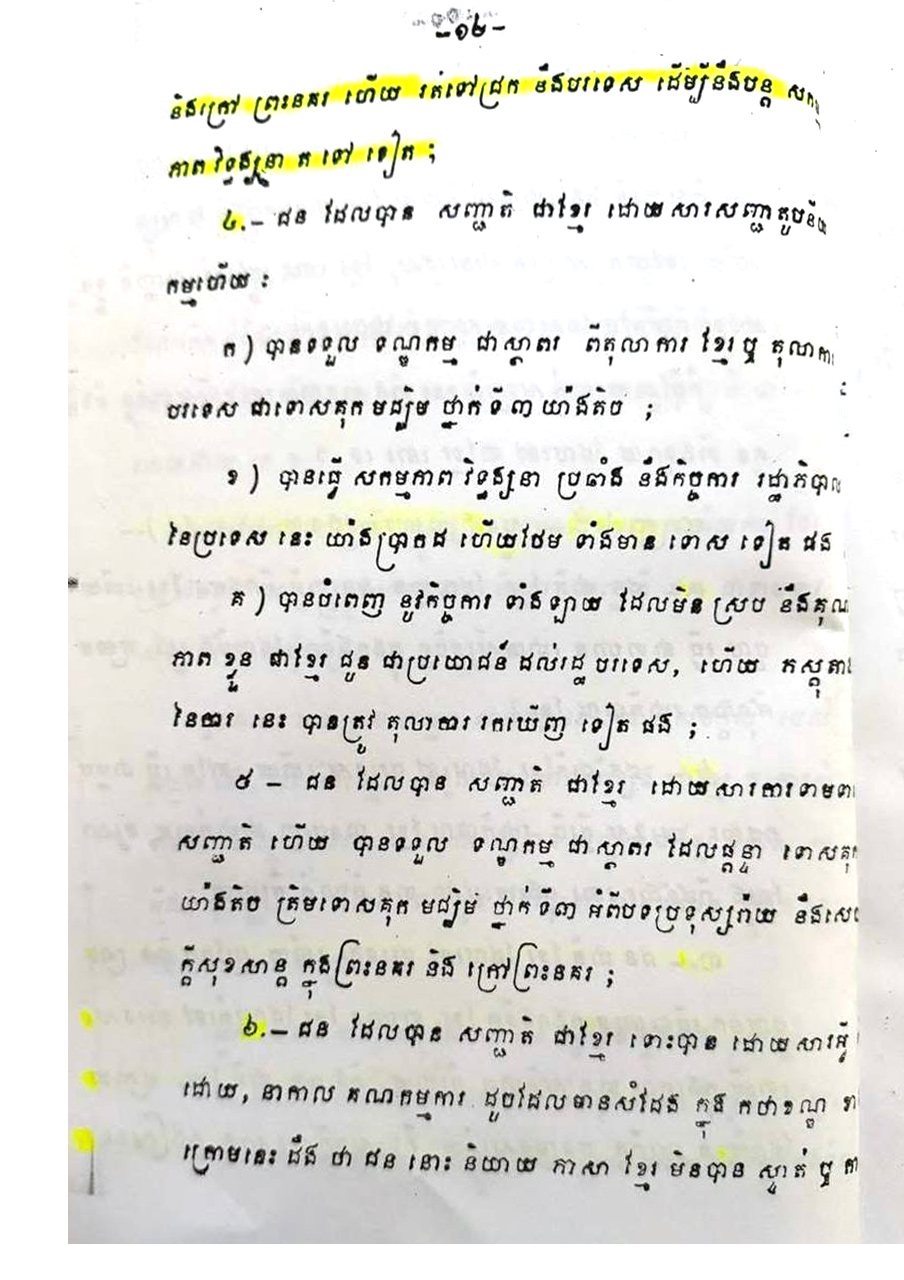 -១២-
និងក្រៅ ព្រះនគរ ហើយ រត់ទៅជ្រក នឹងបរទេស ដើម្បីនឹងបន្ត សក
ភាព វិទ្ធង្សនា ត ទៅ ទៀត ;
៤.- ជន ដែលបាន សញ្ជាតិ ជាខ្មែរ ដោយសារសញ្ជាតូបនី
កម្មហើយ :
ក ) បានទទួល ទណ្ឌកម្ម ជាស្ថាពរ ពីតុលាការ ខ្មែរ ឬ តុលាកា
បរទេស ជាទោសគុកមជ្ឈិម ថ្នាក់ទី៣ យ៉ាងតិច ;
ខ ) បានធ្វើ សកម្មភាព វិទ្ធង្សនា ប្រឆាំង នឹងកិច្ចការ រដ្ឋាភិបាល
នៃប្រទេស នេះ យ៉ាងប្រាកដ ហើយថែម ទាំងមាន ទោស ទៀត ផង
គ ) បានបំពេញ នូវកិច្ចការ ទាំងឡាយ ដែលមិន ស្រប នឹងគុណ
ភាព ខ្លួន ជាខ្មែរ ជូន ជាប្រយោជន៍ ដល់រដ្ឋ បរទេស, ហើយ ភស្តុតា
នៃការ នេះ បានត្រូវ តុលាការ រកឃើញ ទៀត ផង ;
៥ - ជន ដែលបាន សញ្ជាតិ ជាខ្មែរ ដោយសារការទាមទា
សញ្ជាតិ ហើយ បានទទួល ទណ្ឌកម្ម ជាស្ថាពរ ដែលផ្តន្ទា ទោសគុក
យ៉ាងតិច ត្រឹមទោសគុក មជ្ឈិម ថ្នាក់ទី៣ អំពីបទប្រទុស្សរ៉ាយ នឹងសេច
ក្តីសុខសាន្ត ក្នុងព្រះនគរ និង ក្រៅព្រះនគរ ;
៦.- ជន ដែលបាន សញ្ជាតិ ជាខ្មែរ ទោះបាន ដោយសារអ្វី
ដោយ, នាកាល គណកម្មការ ដូចដែលមានសំដែង ក្នុង កថាខណ្ឌ ខា
ក្រោមនេះ ដឹង ថា ជន នោះ និយាយ ភាសា ខ្មែរ មិនបាន ស្ទាត់ ឬ